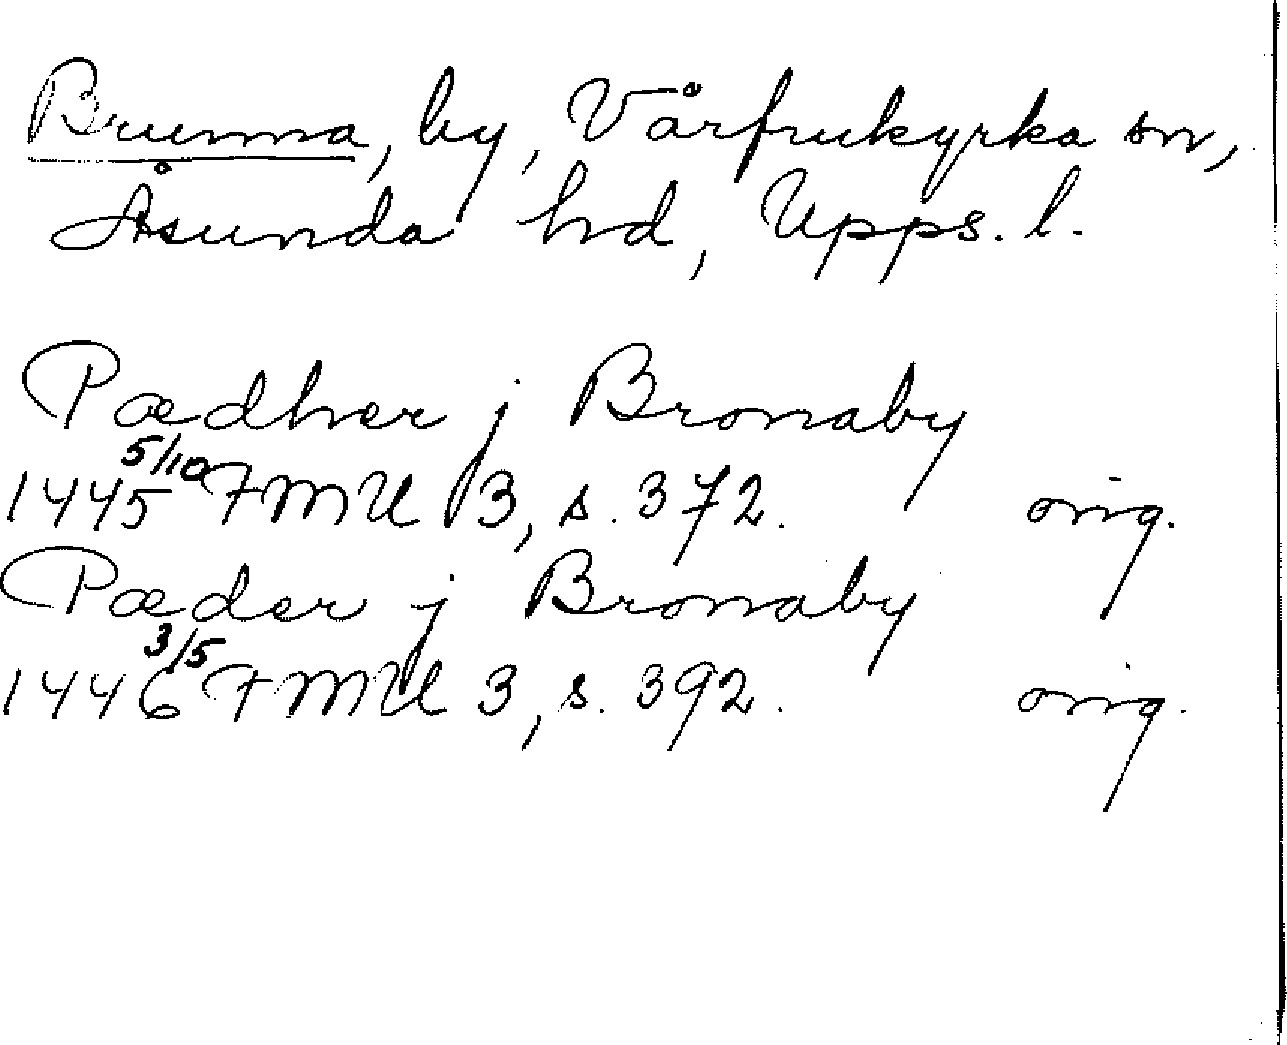 Brunna, by, Vårfrukyrka sn,
Åsunda hd, Upps. l.
Pædher j Bronaby
1445 5/10 FMU 3, s. 372. orig.
Pæder j Bronaby
1446 3/5 FMU 3, s. 392. orig.